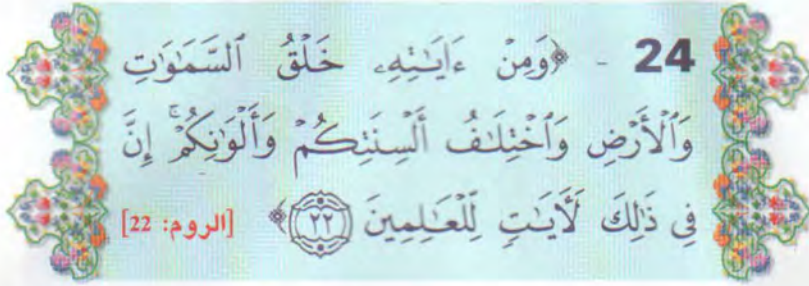 24 - ﴿وَمِنْ ءَايَـٰتِهِۦ خَلْقُ ٱلسَّمَـٰوَٰتِ
وَٱلْأَرْضِ وَٱخْتِلَـٰفُ أَلْسِنَتِكُمْ وَأَلْوَٰنِكُمْ ۚ إِنَّ
فِى ذَٰلِكَ لَـَٔايَـٰتٍ لِّلْعَـٰلِمِينَ ﴿٢٢﴾﴾ [الروم: 22]